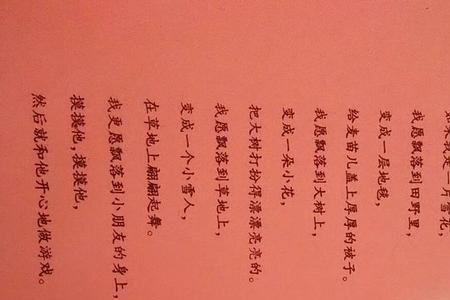 如果我是一片雪花,
我愿飘落到田野里,
变成一层地毯,
给麦苗儿盖上厚厚的被子。
我愿飘落到大树上,
变成一朵小花,
把大树打扮得漂漂亮亮的。
我愿飘落到草地上,
变成一个小雪人,
在草地上翩翩起舞。
我更愿飘落到小朋友的身上,
摸摸他,摸摸他,
然后就和他开心地做游戏。